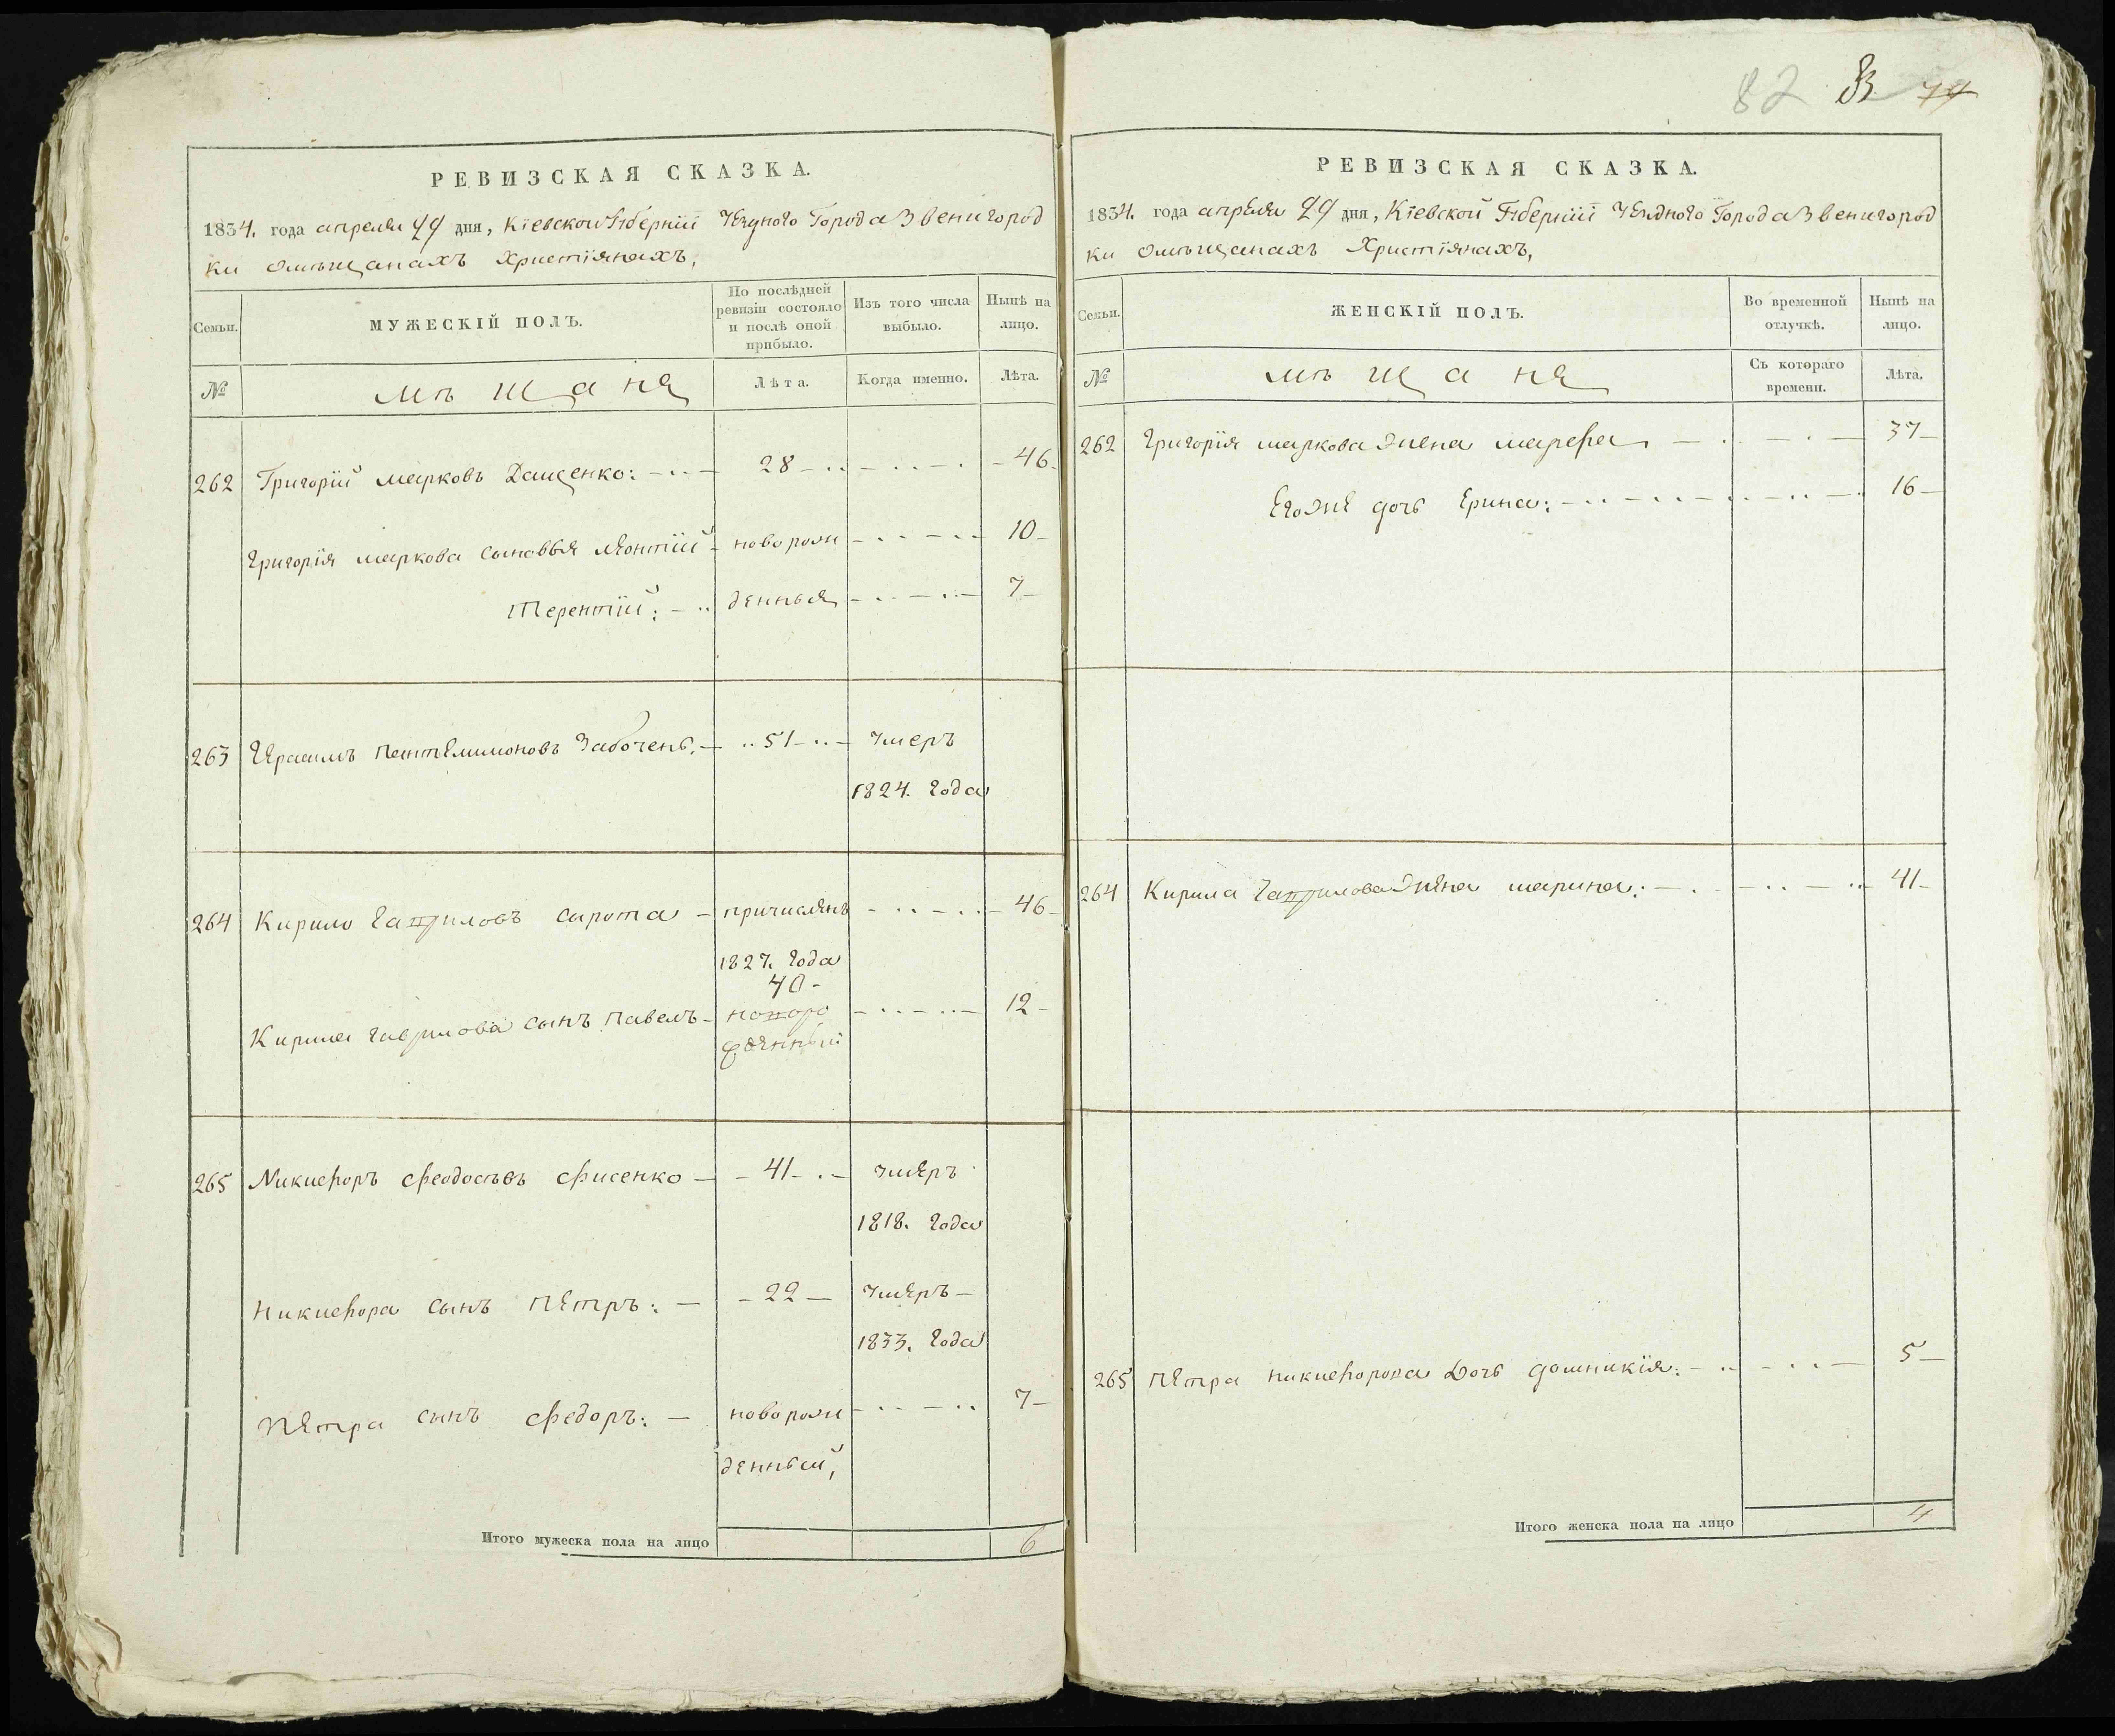 82 83 79
РЕВИЗСКАЯ СКАЗКА.
1834. года апреля 29 дня, Кіевской Губерніи Уездного Города Звенигород
ки омѣщанахъ Христіянахъ,
Семьи.
МУЖЕСКІЙ ПОЛЪ.
По послѣдней ревизіи состояло и послѣ оной прибыло.
Изъ того числа выбыло.
Нынѣ на лицо.
№
мѣщане
Лѣта.
Когда именно.
Лѣта.
262 Григорій Марковъ Дащенко: 28 46
Григорія Маркова сыновья Леонтій новорож 10
Терентій: денные 7
263 Герасимъ Пантелимоновъ 51 умеръ
1824. года
264 Кирило Гавриловъ Сирота причисленъ 46
1827. года
40
Кирила Гаврилова сынъ Павелъ новоро 12
жденный
265 Никифоръ Феодосьевъ Фисенко 41 умеръ
1818. года
Никифора сынъ Петръ: 22 умеръ
1833. года
Петра сынъ Федоръ: новорож 7
денный,
Итого мужеска пола на лицо 6
РЕВИЗСКАЯ СКАЗКА.
1834. года апреля 29 дня, Кіевской Губерніи Уездного Города Звенигород
ки омѣщанахъ Христіянахъ,
Семьи.
ЖЕНСКІЙ ПОЛЪ.
Во временной отлучкѣ.
Нынѣ на лицо.
№
мѣщане
Съ котораго времени.
Лѣта.
262 Григорія Маркова жена Марфа 37
Его же дочь Ерина: 16
264 Кирила Гаврилова жена Марина: 41
265 Петра Никифорова дочь Домникія: 5
Итого женска пола на лицо 4